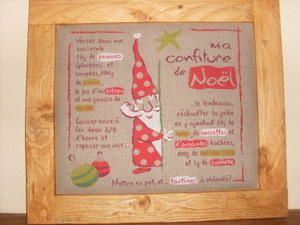 Verser dans une
casserole
1 kg de pommes
épluchées et
coupées, 800g
de sucre,
le jus d'un citron
et une gousse de
vanille.
Laisser cuire à
feu doux 3/4
d'heure et
reposer une nuit...
ma
confiture
de Noël
... le lendemain,
réchauffer la gelée
en y ajoutant 50g de
noix, de noisettes et
d'amandes hachées,
et 5g de cannelle
Mettre en pot, et... tartiner à volonté!